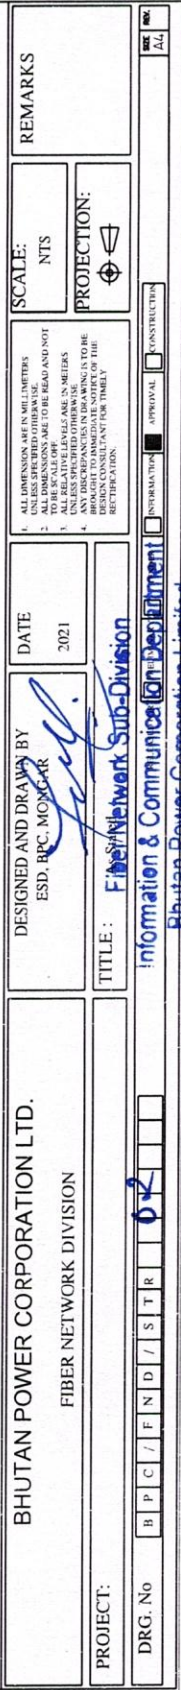 BHUTAN POWER CORPORATION LTD.
FIBER NETWORK DIVISION
PROJECT:
DRG. No B P C / F N D / S T R 02
DESIGNED AND DRAWN BY
ESD, BPC, MONGAR
DATE
2021
TITLE :
Fiber Network Sub-Division
Information & Communication Department
Bhutan Power Corporation Limited
1. ALL DIMENSION ARE IN MILLIMETERS
UNLESS SPECIFIED OTHERWISE.
2. ALL DIMENSIONS ARE TO BE READ AND NOT
TO BE SCALE OFF.
3. ALL RELATIVE LEVELS ARE IN METERS
UNLESS SPECIFIED OTHERWISE
4. ANY DISCREPANCIES IN DRAWING IS TO BE
BROUGHT TO IMMEDIATE NOTICE OF THE
DESIGN CONSULTANT FOR TIMELY
RECTIFICATION.
SCALE:
NTS
PROJECTION:
REMARKS
INFORMATION APPROVAL CONSTRUCTION
SIZE
A4
REV.